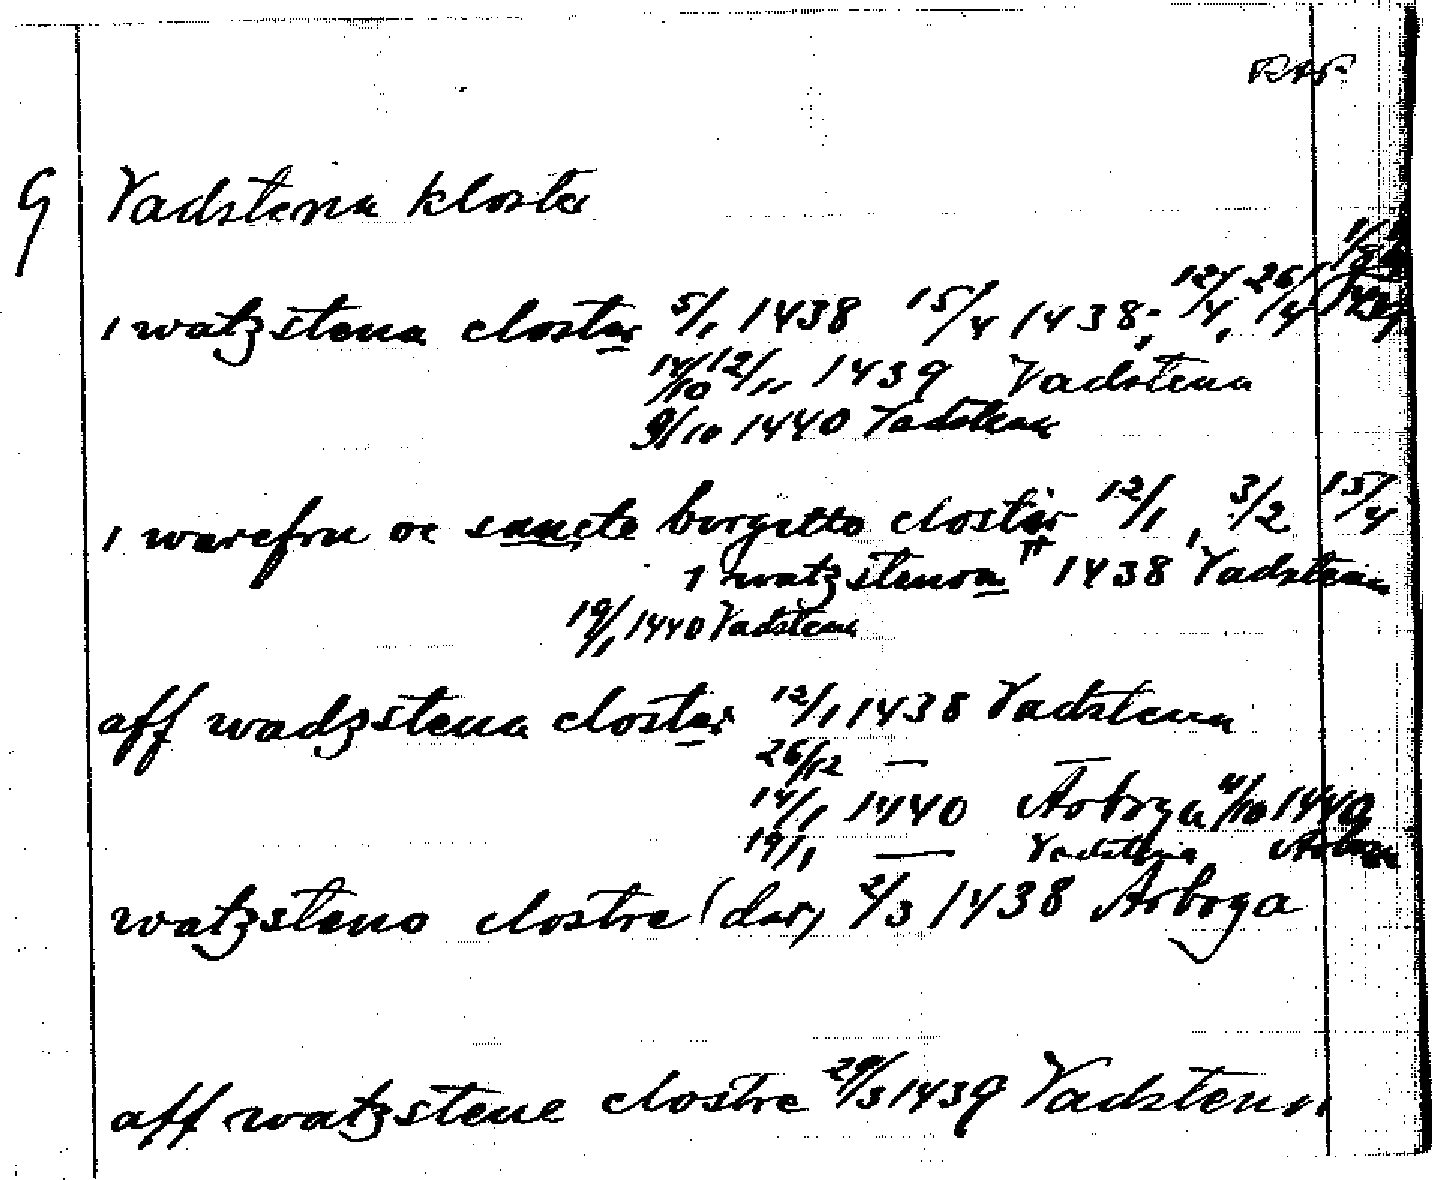 RAP
G Vadstena kloster
i watzstena closter 5/1 1438 15/4 1438; 12/4, 26/4
14/10 12/11 1439 Vadstena
9/10 1440 Vadstena
i warefru oc sancte birgitto closter 12/1, 3/2 15/4
i watzstenom 1438 Vadstena
19/1 1440 Vadstena
aff wadzstena closter 12/1 1438 Vadstena
26/12 — —
14/1 1440 Arboga 4/10 1440
19/1 — Vadstena Arboga
watzsteno clostre (dar) 2/3 1438 Arboga
aff watzstene clostre 29/3 1439 Vadstena